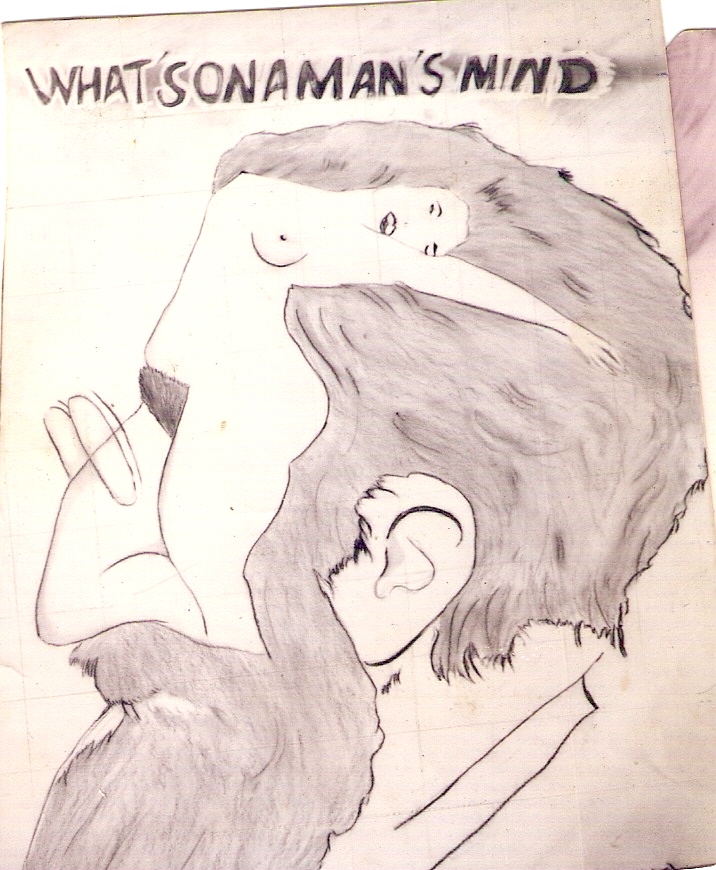 WHAT'S ON A MAN'S MIND